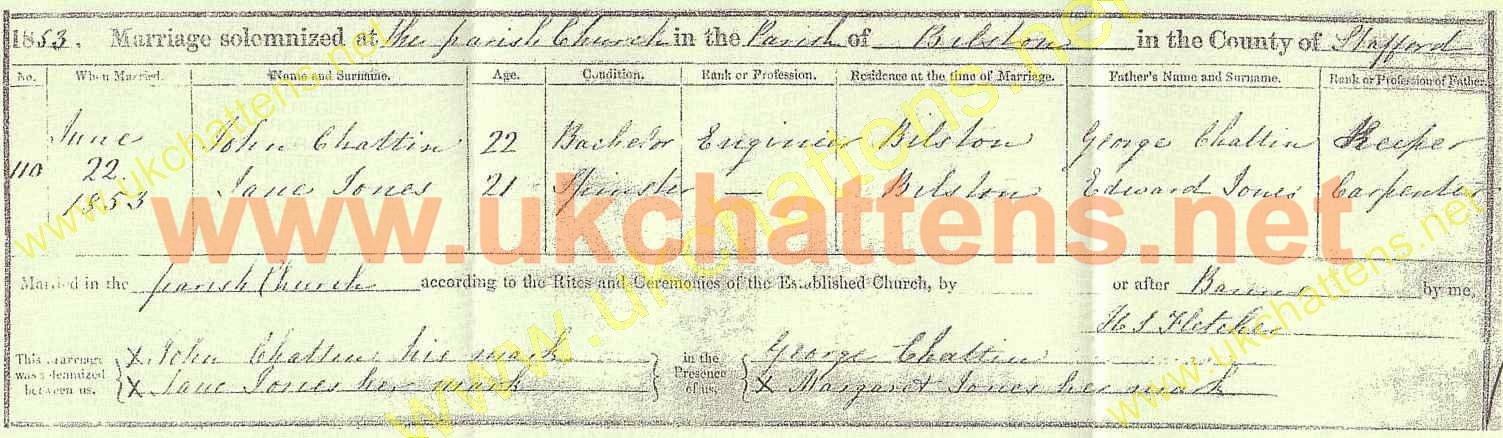 1853. Marriage solemnized at the parish Church in the Parish of Bilston in the County of Stafford
No. When Married. Name and Surname. Age. Condition. Rank or Profession. Residence at the time of Marriage. Father's Name and Surname. Rank or Profession of Father.
110 June 22. 1853 John Chattin 22 Bachelor Engineer Bilston George Chattin Keeper
Jane Jones 21 Spinster — Bilston Edward Jones Carpenter
www.ukchattens.net
Married in the parish Church according to the Rites and Ceremonies of the Established Church, by or after Banns by me,
H S Fletcher
This marriage was solemnized between us, X John Chattin his mark in the Presence of us, George Chattin
X Jane Jones her mark X Margaret Jones her mark
www.ukchattens.net
www.ukchattens.net
www.ukchattens.net
www.ukchattens.net